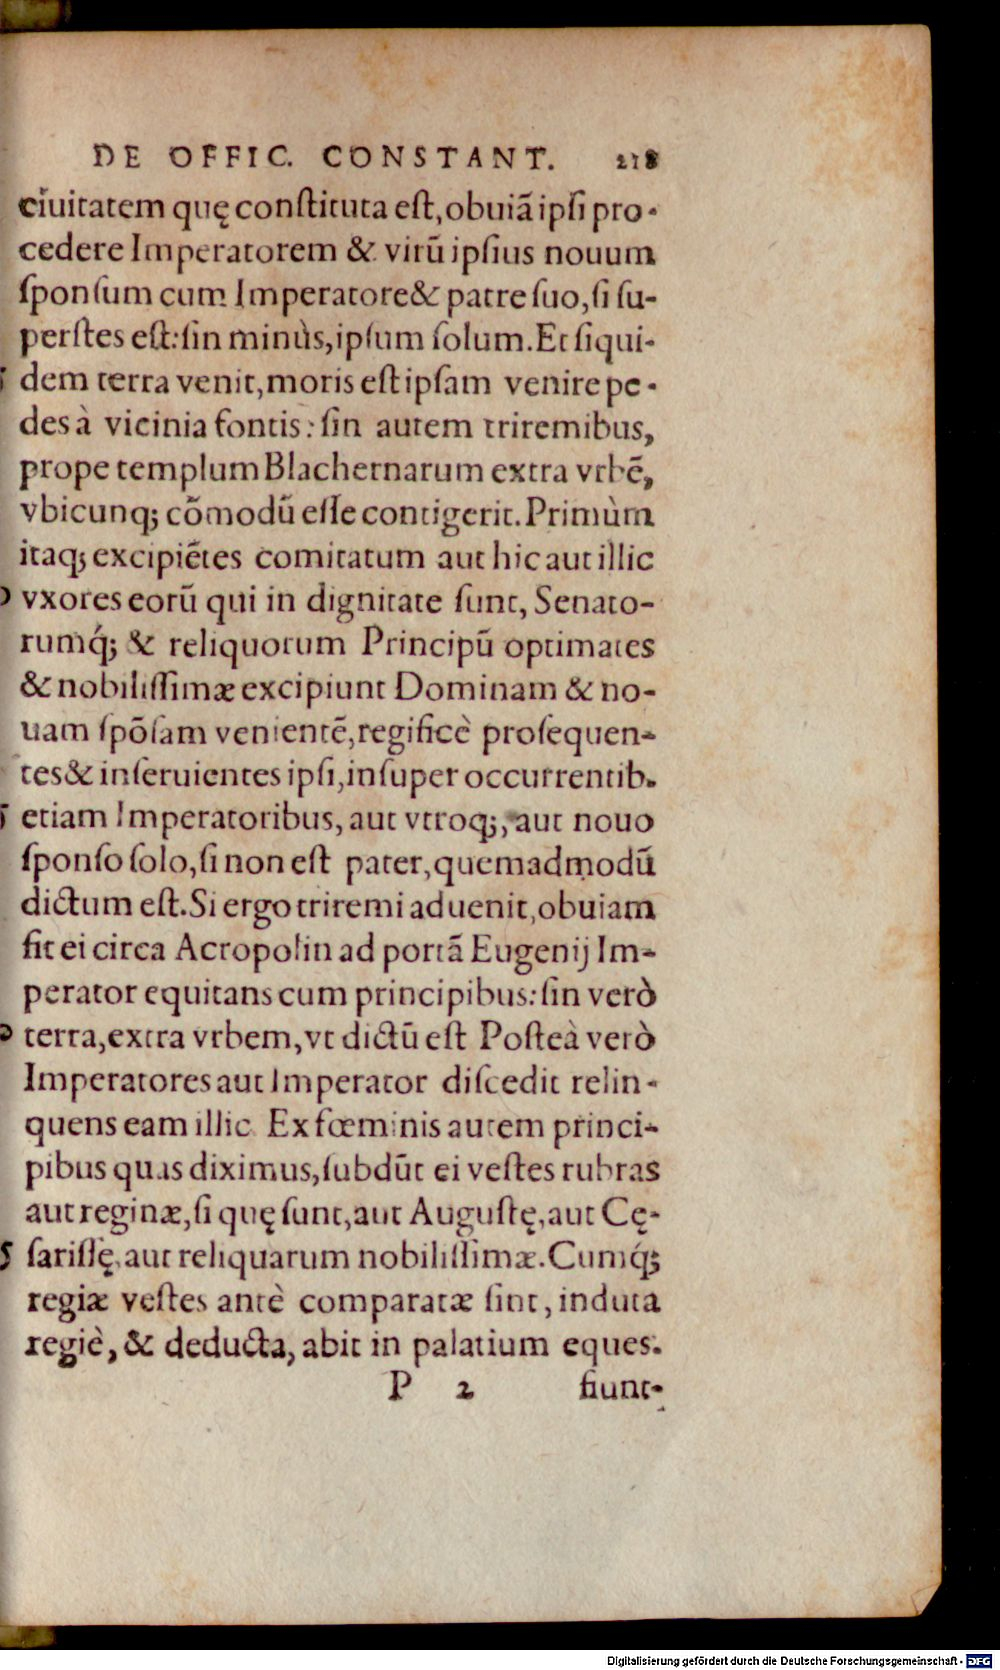 DE OFFIC. CONSTANT. 218
ciuitatem quę constituta est, obuiã ipsi pro-
cedere Imperatorem & virũ ipsius nouum
sponsum cum Imperatore & patre suo, si su-
perstes est: sin minùs, ipsum solum. Et siqui-
dem terra venit, moris est ipsam venire pe-
des à vicinia fontis: sin autem triremibus,
prope templum Blachernarum extra vrbẽ,
vbicunq; cõmodũ esse contigerit. Primùm
itaq; excipiẽtes comitatum aut hic aut illic
vxores eorũ qui in dignitate sunt, Senato-
rumq́; & reliquorum Principũ optimates
& nobilissimæ excipiunt Dominam & no-
uam spõsam venientẽ, regificè prosequen-
tes & inseruientes ipsi, insuper occurrentib.
etiam Imperatoribus, aut vtroq;, aut nouo
sponso solo, si non est pater, quemadmodũ
dictum est. Si ergo triremi aduenit, obuiam
fit ei circa Acropolin ad portã Eugenij Im-
perator equitans cum principibus: sin verò
terra, extra vrbem, vt dictũ est Posteà verò
Imperatores aut Imperator discedit relin-
quens eam illic. Ex fœminis autem princi-
pibus quas diximus, subdũt ei vestes rubras
aut reginæ, si quę sunt, aut Augustę, aut Cę-
sarissę, aut reliquarum nobilissimæ. Cumq́;
regiæ vestes antè comparatæ sint, induta
regiè, & deducta, abit in palatium eques.
P 2 fiunt-
Digitalisierung gefördert durch die Deutsche Forschungsgemeinschaft - DFG